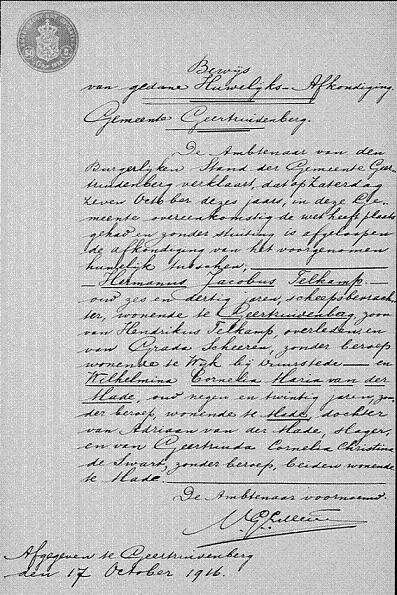 Bewijs
van gedane Huwelijks-Afkondiging.
Gemeente Geertruidenberg.
De Ambtenaar van den
Burgerlijken Stand der Gemeente Geer-
truidenberg verklaart, dat op Zaterdag
zeven October dezes jaars, in deze Ge-
meente overeenkomstig de wet heeft plaats
gehad en zonder stuiting is afgeloopen
de afkondiging van het voorgenomen
huwelijk tusschen,
Hermanus Jacobus Telkamp.
oud zes en dertig jaren, scheepsbevrach-
ter, wonende te Geertruidenberg, zoon
van Hendrikus Telkamp, overleden, en
van Grada Scheeren, zonder beroep
wonende te Wijk bij Duurstede en
Wilhelmina Cornelia Maria van der
Made, oud negen en twintig jaren, zon-
der beroep, wonende te Made, dochter
van Adriaan van der Made, slager,
en van Geertruida Cornelia Christina
de Swart, zonder beroep, beiden wonende
te Made.
De Ambtenaar voornoemd.
Afgegeven te Geertruidenberg
den 17 October 1916.